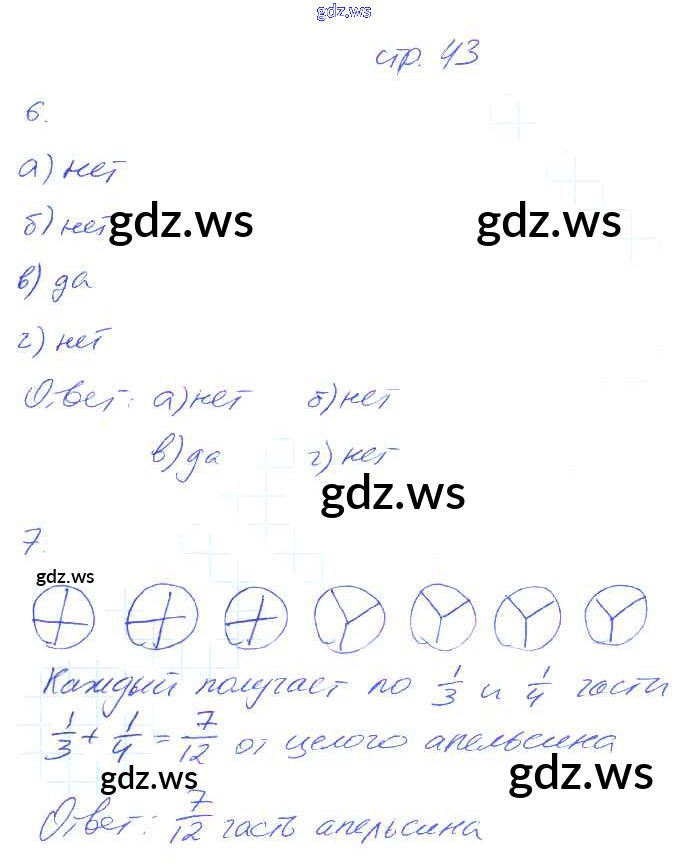 gdz.ws
стр. 43
6.
а) нет
б) нет gdz.ws gdz.ws
в) да
г) нет
Ответ: а) нет б) нет
в) да г) нет
gdz.ws
7.
gdz.ws
Каждый получает по 1/3 и 1/4 части
1/3 + 1/4 = 7/12 от целого апельсина
gdz.ws gdz.ws
Ответ: 7/12 часть апельсина